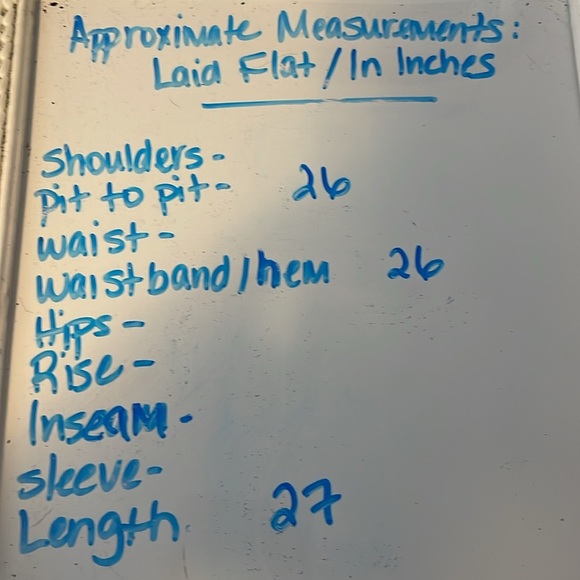 Approximate Measurements:
Laid Flat/In Inches
Shoulders-
pit to pit- 26
waist-
waistband/hem 26
Hips-
Rise-
Inseam-
sleeve-
Length 27